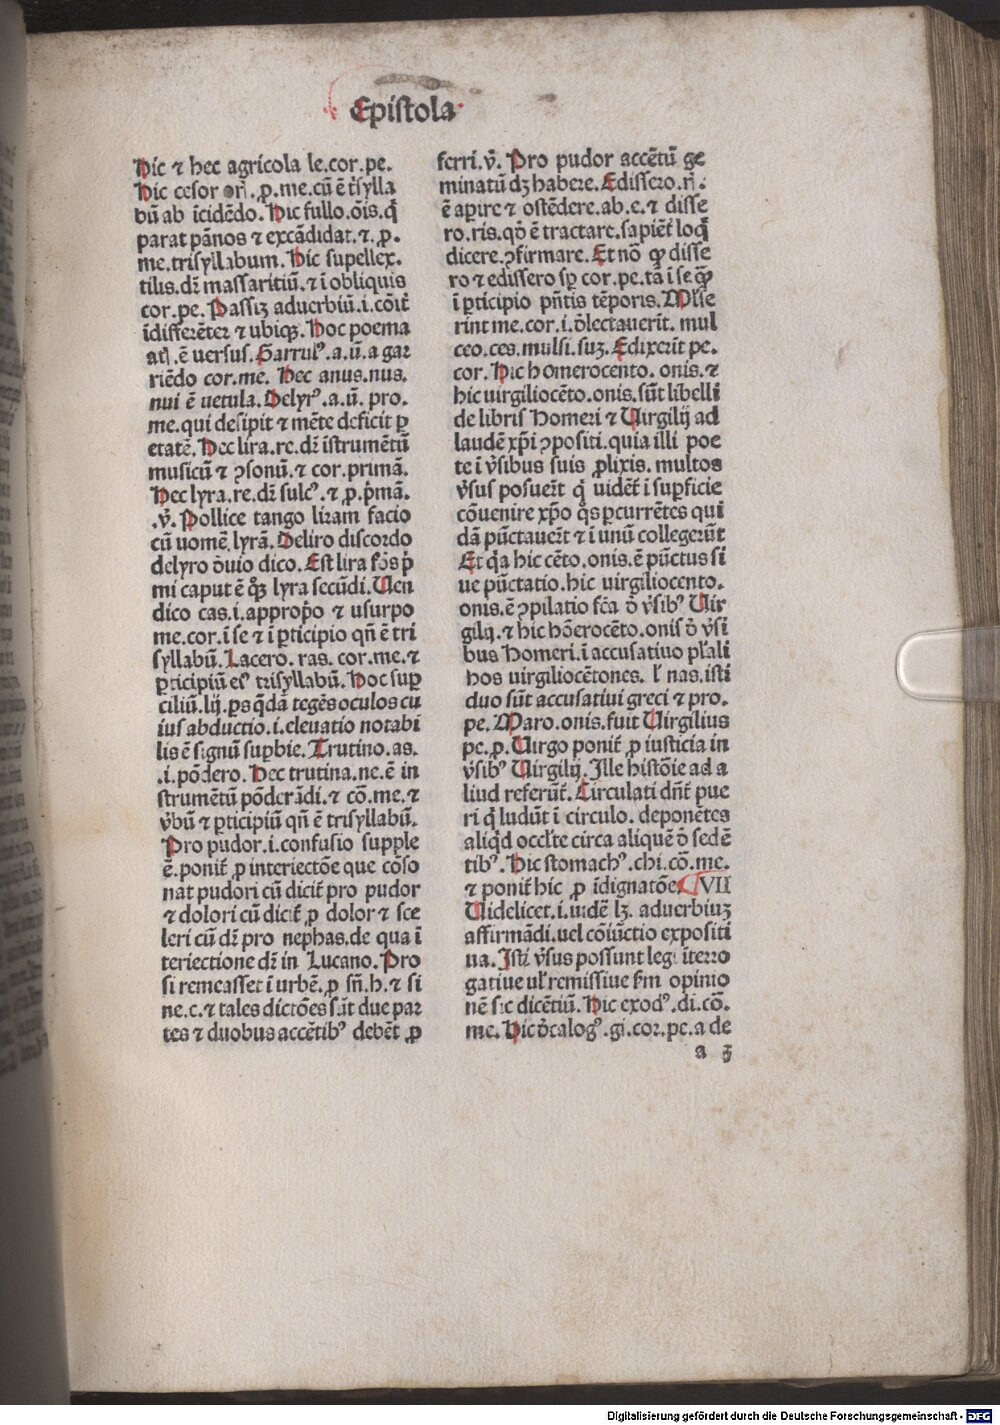 Epistola
Hic ⁊ hec agricola le.cor.pe.
Hic cesor orꝭ.ꝓ.me.cū ē tͥsylla
bū ab ícidēdo. Hic fullo.ōis.ꝗ̄
parat pānos ⁊ excādidat.⁊.ꝓ.
me.trisyllabum. Hic supellex.
tilis.dr̄ massaritiū.⁊ ī obliquis
cor.pe. Passiꝫ aduerbiū.i.cōīt̄
īdifferēter ⁊ ubiqꝫ. Hoc poema
atꝭ.ē uersus. Garrulꝰ.a.ū.a gar
riēdo cor.me. Hec anus.nus.
nui ē uetula. Delyrꝰ.a.ū. pro.
me.qui desipit ⁊ mēte deficit ꝑ
etatē. Hec lira.re.dr̄ īstrumētū
musicū ⁊ ꝯsonū.⁊ cor.primā.
Hec lyra.re.dr̄ sulcꝰ.⁊.ꝓ.pͥmā.
.v̄. Pollice tango liram facio
cū uomē lyrā. Deliro discordo
delyro ō̄uio dico. Est lira fōs pͥ
mi caput ē qͣꝫ lyra secūdi. Uen
dico cas.i.appropͥo ⁊ usurpo
me.cor.ī se ⁊ ī ꝑticipio qn̄ ē tri
syllabū. Lacero.ras. cor.me.⁊
ꝑticipiū eiꝰ trisyllabū. Hoc suꝑ
ciliū.lij.ꝑs q̄dā tegēs oculos cu
ius abductio.i.eleuatio notabi
lis ē signū suꝑbie. Trutino.as.
.i.pōdero. Hec trutina.ne.ē in
strumētū pōderādi.⁊ cō.me.⁊
v̄bū ⁊ ꝑticipiū qn̄ ē trisyllabū.
Pro pudor.i.confusio supple
ē.ponit̄ ꝓ interiectōe que cōso
nat pudori cū dicit̄ pro pudor
⁊ dolori cū dicit̄ ꝓ dolor ⁊ sce
leri cū dr̄ pro nephas.de qua ī
teriectione dr̄ in Lucano. Pro
si remeasset ī urbē.ꝓ sn̄.h.⁊ si
ne.c.⁊ tales dictōes sūt due par
tes ⁊ duobus accētibꝰ debēt ꝓ
ferri.v̄. Pro pudor accētū ge
minatū dꝫ habere. Edissero.ris.
ē aꝑire ⁊ ostēdere.ab.e.⁊ disse
ro.ris.qō ē tractare.sapiēt̄ loq̄
dicere.ꝯfirmare. Et nō ꝙ disse
ro ⁊ edissero sꝑ cor.pe.tā ī se qͣꝫ
ī ꝑticipio pn̄tis tēporis. Mlse
rint me.cor.i.ō̄lectauerīt. mul
ceo.ces.mulsi.suꝫ. Edixerīt pe.
cor. Hic homerocento.onis.⁊
hic uirgiliocēto.onis.sūt libelli
de libris Homeri ⁊ Uirgilij ad
laudē xp̄i ꝯpositi.quia illi poe
te ī v̄sibus suis ꝓlixis. multos
v̄sus posuert̄ q̄ uidēt̄ ī suꝑficie
cōuenire xp̄o qͦs ꝑcurrētes qui
dā pūctauert̄ ⁊ ī unū collegerūt
Et qͥa hic cēto.onis.ē pūctus si
ue pūctatio.hic uirgiliocento.
onis.ē ꝯpilatio fc̄a ō̄ v̄sibꝰ Uir
gilij.⁊ hic hōerocēto.onis ō̄ v̄si
bus Homeri.ī accusatiuo pl̄ali
hos uirgiliocētones. l̄ nas.isti
duo sūt accusatiui greci ⁊ pro.
pe. Maro.onis.fuit Uirgilius
pe.ꝓ. Uirgo ponit̄ ꝓ iusticia in
v̄sibꝰ Uirgilij. Ille histōie ad a
liud referūt̄. Circulati dn̄t̄ pue
ri q̄ ludūt ī circulo. deponētes
aliqͥd occl̄te circa aliquē ō̄ sedē
tibꝰ. Hic stomachꝰ.chi.cō.me.
⁊ ponit̄ hic ꝓ īdignatōe. VII
Uidelicet.i.uidē lꝫ. aduerbiuꝫ
affirmādi.uel cōiūctio expositi
ua. Isti v̄sus possunt legi īterro
gatiue ul̄ remissiue sm̄ opinio
nē sic dicētiū. Hic exodꝰ.di.cō.
me. Hic ō̄calogꝰ.gi.cor.pe.a de
a 3
Digitalisierung gefördert durch die Deutsche Forschungsgemeinschaft - DFG